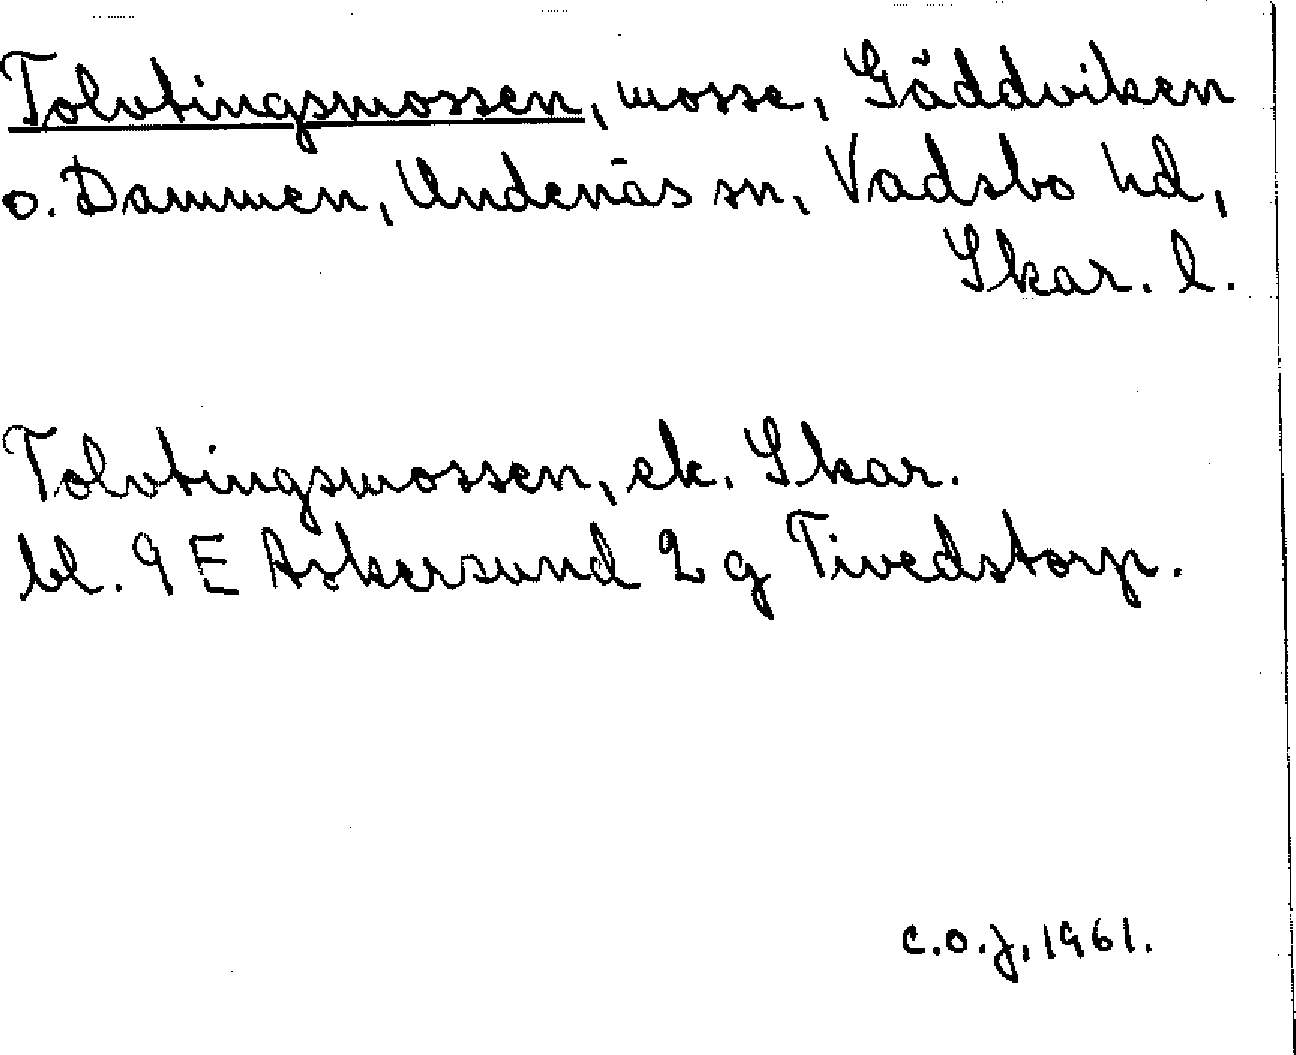 Tolvtingsmossen, mosse, Gäddviken
o. Dammen, Undenäs sn, Vadsbo hd,
Skar. l.
Tolvtingsmossen, ek. Skar.
bl. 9 E Askersund 2 g Tivedstorp.
C.O.J. 1961.